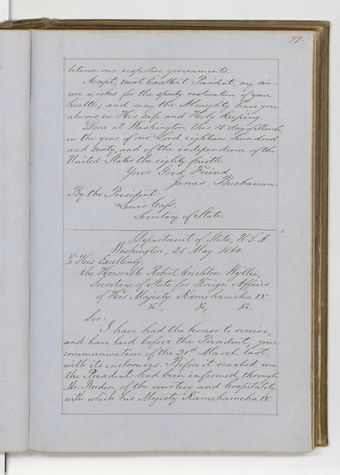 77.
between our respective governments.
Accept, most Excellent President, my sin-
cere wishes for the speedy restoration of your
health; and may the Almighty have you
always in His safe and Holy keeping.
Done at Washington, this 15 day of March,
in the year of our Lord eighteen hundred
and sixty, and of the independence of the
United States the eighty fourth.
Your Good Friend,
James Buchanan.
By the President:
Lewis Cass,
Secretary of State.
Department of State, U.S.A.
Washington, 25 May 1860.
To His Excellency,
the Honorable Robert Crichton Wyllie,
Secretary of State for Foreign Affairs
of His Majesty Kamehameha IV.
&c, &c, &c
Sir:
I have had the honor to receive,
and have laid before the President, your
communication of the 21st March, last,
with its enclosures. Before it reached me
the President had been informed, through
Mr. Borden, of the courtesy and hospitality
with which his Majesty Kamehameha IV